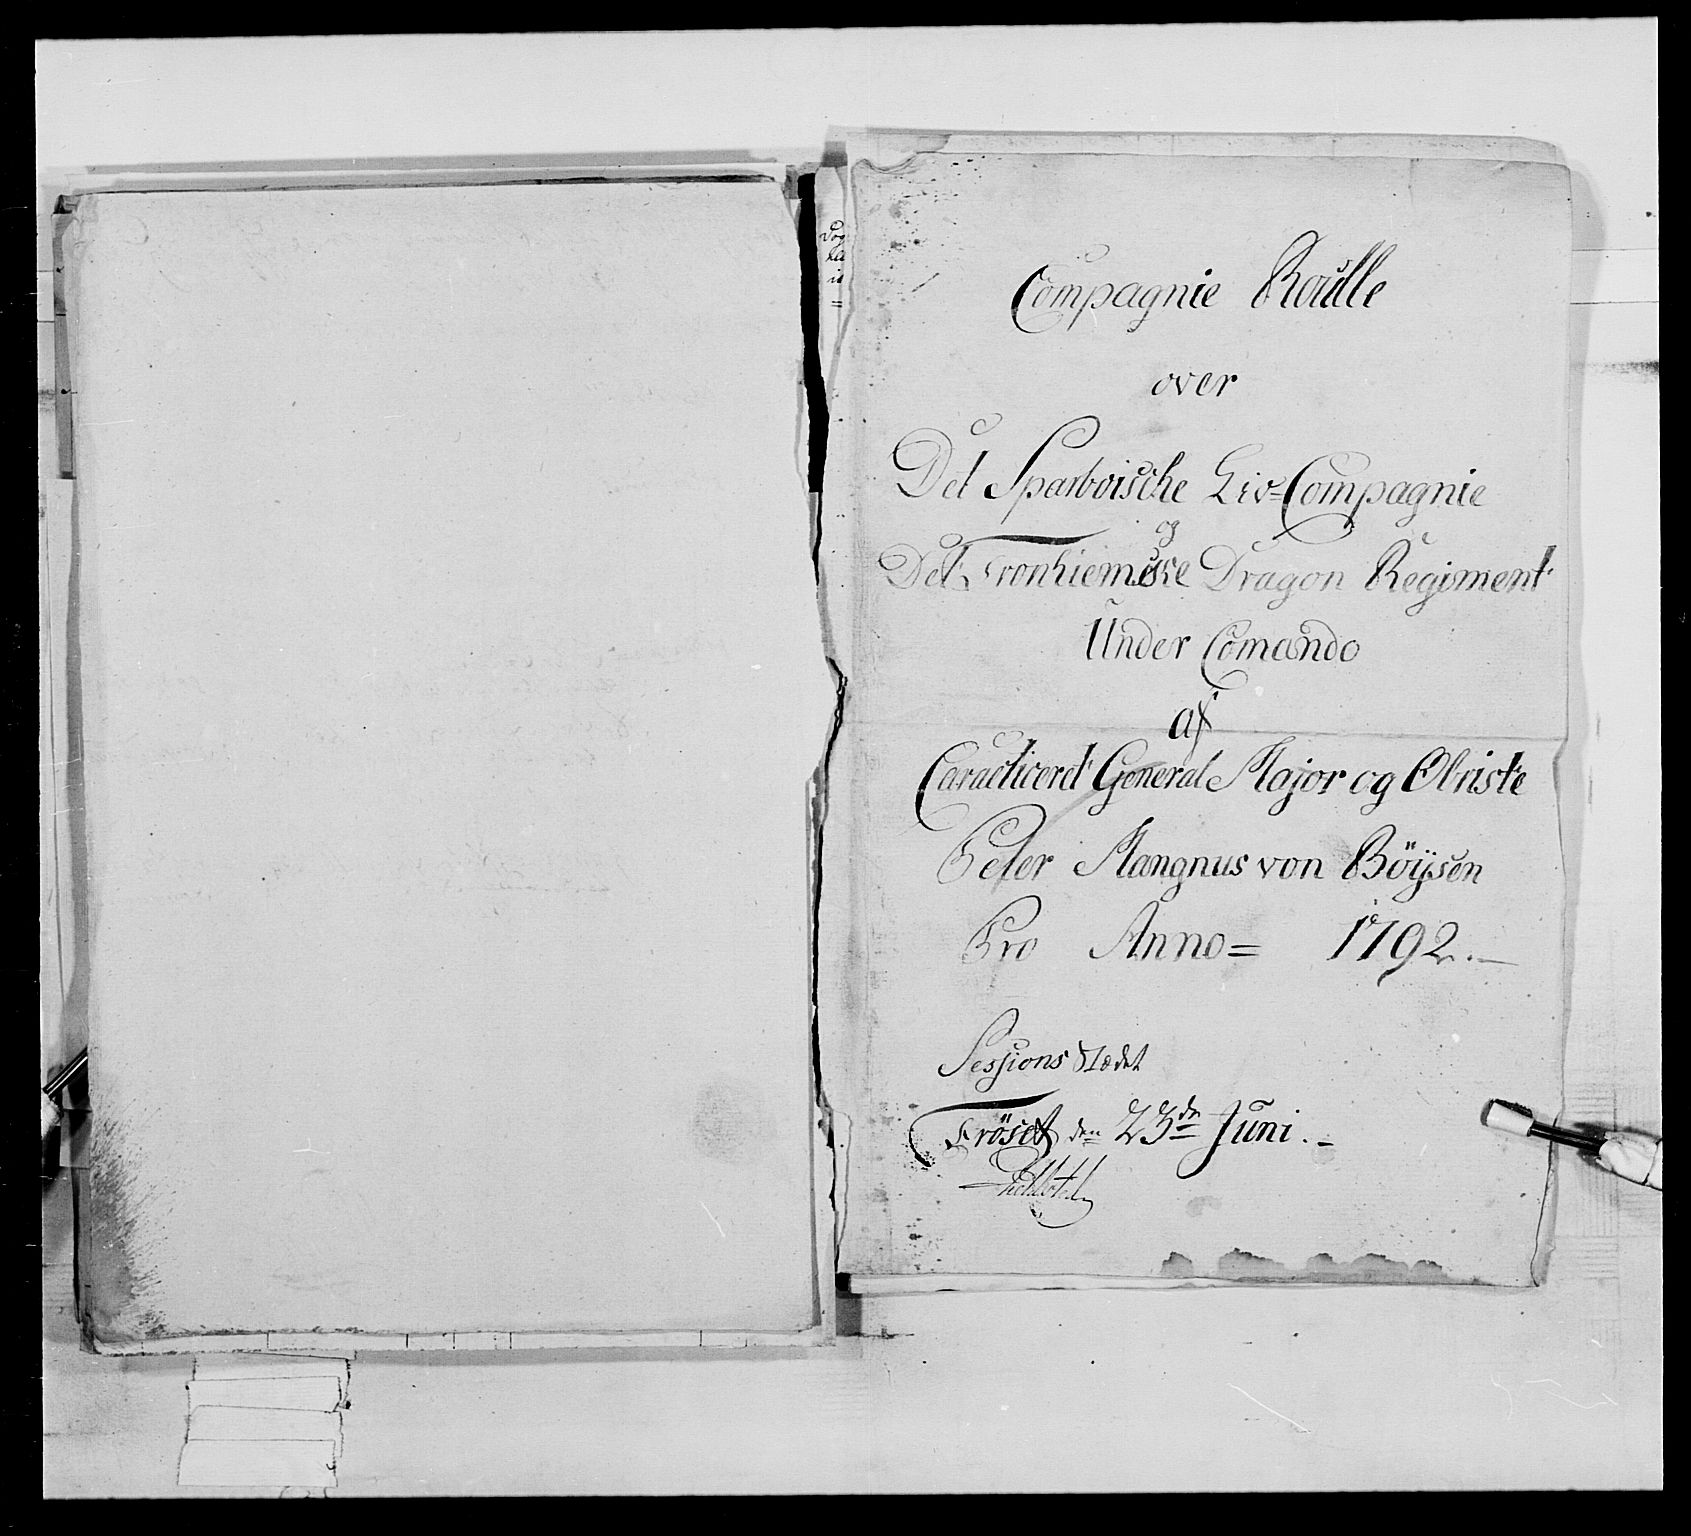 Compagnie Roulle
over
Det Sparboische Liv=Compagnie
og
Det Tronhiemske Dragon Regiment
Under Comando
af
Caracticerd General Major og Obriste
Peter Mangnus von Böÿsen
Pro Anno= 1792.—
Sessions Stædet
Fröset den 23de Juni.—